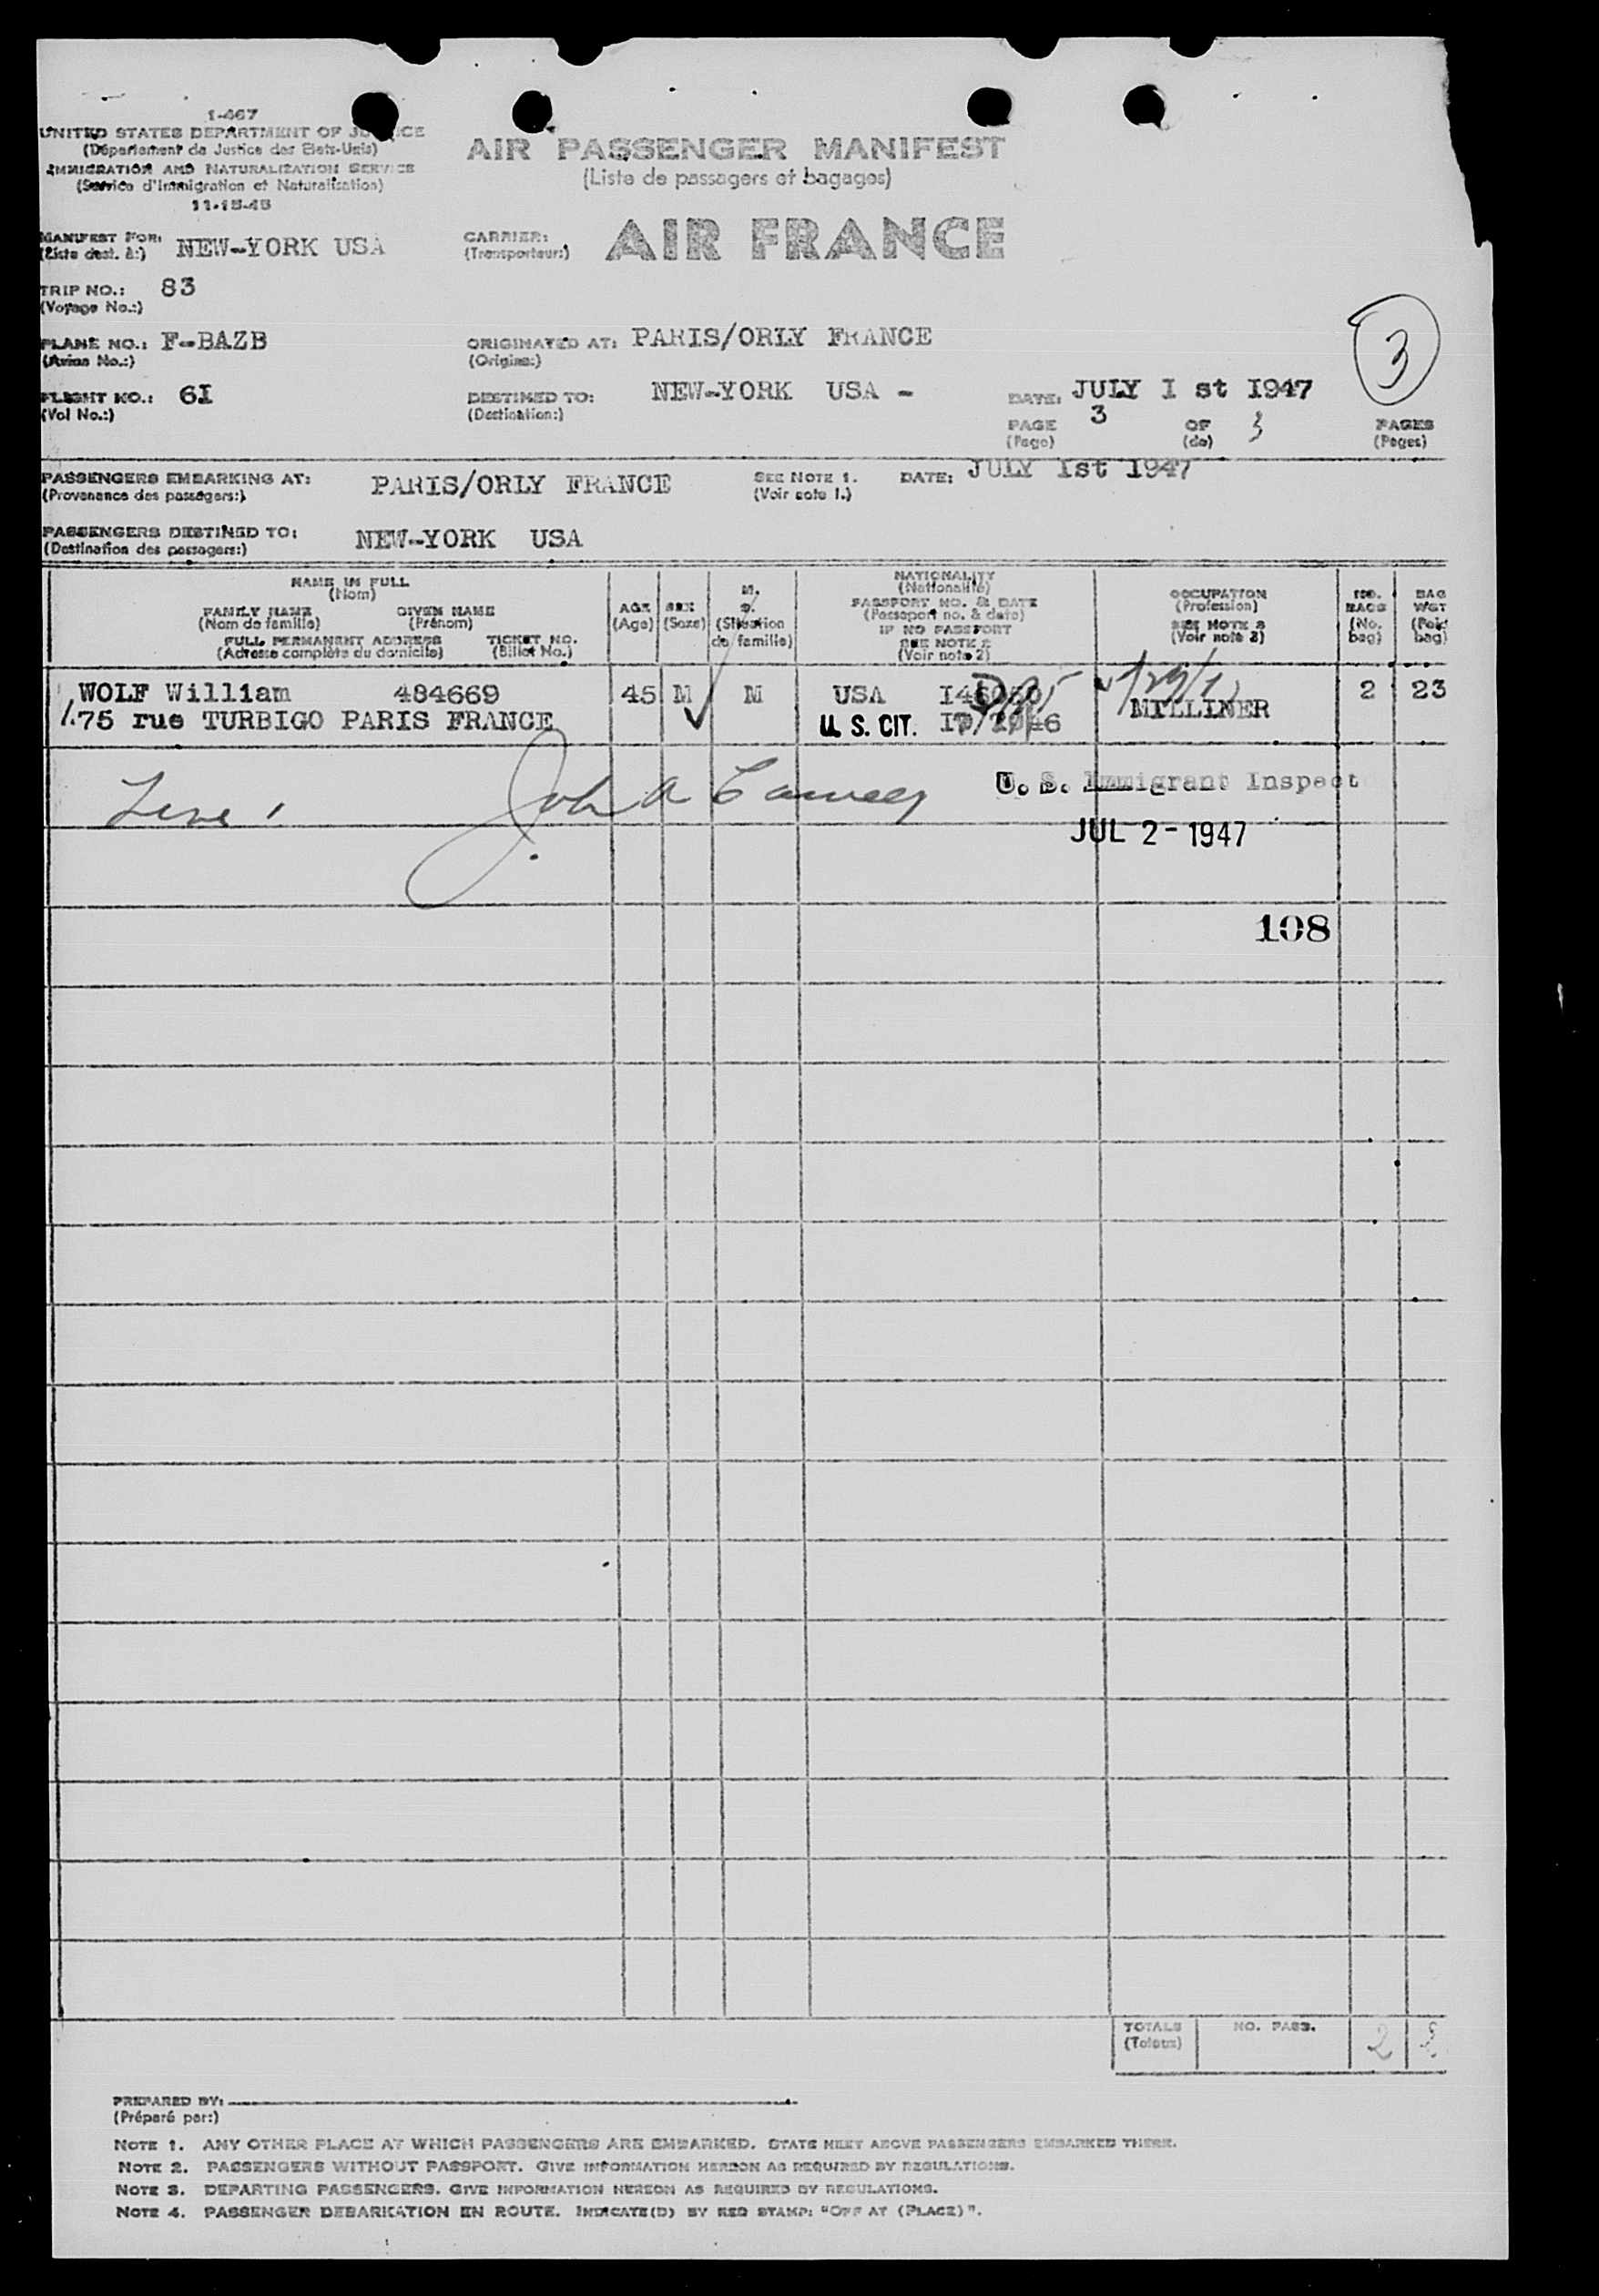 1-467
UNITED STATES DEPARTMENT OF JUSTICE
(Département de Justice des Etats-Unis)
IMMIGRATION AND NATURALIZATION SERVICE
(Service d'Immigration et Naturalisation)
11-15-45
AIR PASSENGER MANIFEST
(Liste de passagers et bagages)
MANIFEST FOR: NEW-YORK USA
(Liste dest. à:)
CARRIER: AIR FRANCE
(Transporteur:)
TRIP NO.: 83
(Voyage No.:)
3
PLANE NO.: F-BAZB
(Avion No.:)
ORIGINATED AT: PARIS/ORLY FRANCE
(Origine:)
FLIGHT NO.: 6I
(Vol No.:)
DESTINED TO: NEW-YORK USA -
(Destination:)
DATE: JULY I st I947
PAGE 3 OF 3 PAGES
(Page) (de) (Pages)
PASSENGERS EMBARKING AT: PARIS/ORLY FRANCE
(Provenance des passagers:)
SEE NOTE 1.
(Voir note 1.)
DATE: JULY Ist I947
PASSENGERS DESTINED TO: NEW-YORK USA
(Destination des passagers:)
NAME IN FULL
(Nom)
FAMILY NAME GIVEN NAME
(Nom de famille) (Prénom)
FULL PERMANENT ADDRESS TICKET NO.
(Adresse complète du domicile) (Billet No.)
AGE
(Age)
SEX
(Sexe)
M.
S.
(Situation
de famille)
NATIONALITY
(Nationalité)
PASSPORT NO. & DATE
(Passeport no. & date)
IF NO PASSPORT
SEE NOTE 2
(Voir note 2)
OCCUPATION
(Profession)
SEE NOTE 2
(Voir note 2)
NO.
BAGS
(No.
bag)
BAG
WGT
bag)
WOLF William 484669 45 M M USA 2 23
75 rue TURBIGO PARIS FRANCE U. S. CIT. MILLINER
John A
U. S. Immigrant Inspect
JUL 2 - 1947
108
TOTALS NO. PASS. 2
(Totaux)
PREPARED BY:
(Préparé par:)
NOTE 1. ANY OTHER PLACE AT WHICH PASSENGERS ARE EMBARKED. STATE NEXT ABOVE PASSENGERS EMBARKED THERE.
NOTE 2. PASSENGERS WITHOUT PASSPORT. GIVE INFORMATION HEREON AS REQUIRED BY REGULATIONS.
NOTE 3. DEPARTING PASSENGERS. GIVE INFORMATION HEREON AS REQUIRED BY REGULATIONS.
NOTE 4. PASSENGER DEBARKATION EN ROUTE. INDICATE(D) BY RED STAMP: "OFF AT (PLACE)".